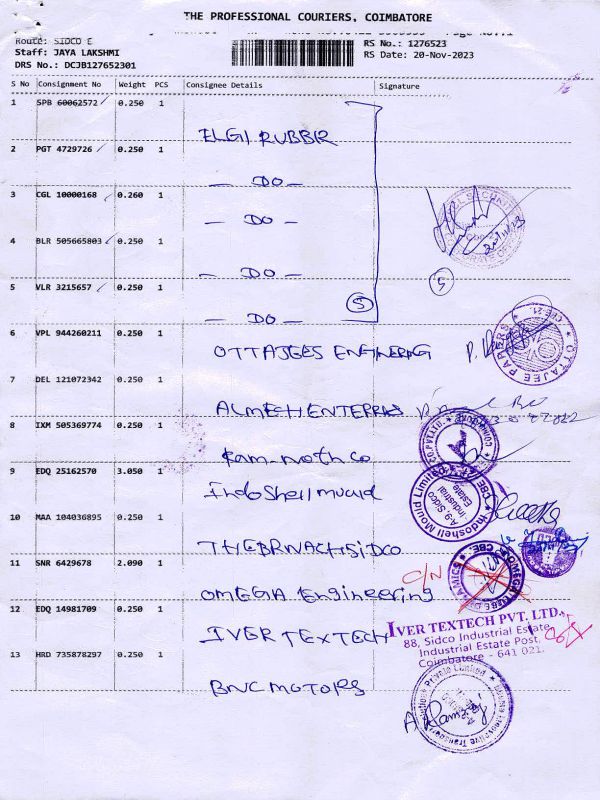 THE PROFESSIONAL COURIERS, COIMBATORE
Route: SIDCO E
Staff: JAYA LAKSHMI
DRS No.: DCJB127652301
RS No.: 1276523
RS Date: 20-Nov-2023
S No Consignment No Weight PCS Consignee Details Signature
1 SPB 60062572 0.250 1
ELGI RUBBR
2 PGT 4729726 0.250 1
— DO —
3 CGL 10000168 0.260 1
— DO —
4 BLR 505665803 0.250 1
— DO —
5 VLR 3215657 0.250 1
— DO —
5
5
6 VPL 944260211 0.250 1
OTTAJEES ENGINERING
OTTAJEE PAPERS
7 DEL 121072342 0.250 1
ALMECH ENTERPRIS
8 IXM 505369774 0.250 1
Ram_noth co
9 EDQ 25162570 3.050 1
Indoshell mould
Indoshell Mould Limited
A-9, Sidco
Industrial
Estate
CBE
10 MAA 104036895 0.250 1
THEBRNACHSIDCO
11 SNR 6429678 2.090 1
OMEGA Engineering
C/N
12 EDQ 14981709 0.250 1
IVER TEXTECH
IVER TEXTECH PVT. LTD.
88, Sidco Industrial Estate
Industrial Estate Post,
Coimbatore - 641 021.
13 HRD 735878297 0.250 1
BNC MOTORS